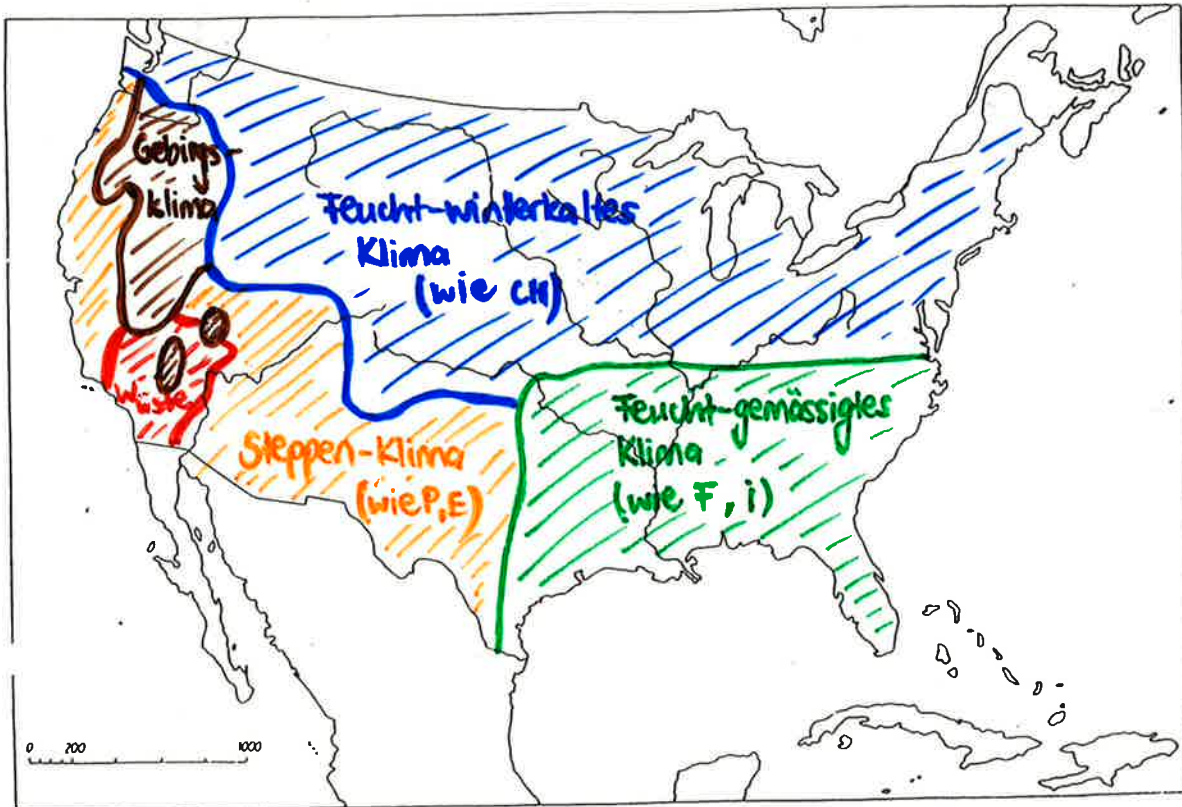 Gebirgs-
klima
Feucht-winterkaltes
Klima
(wie CH)
Wüste
Steppen-Klima
(wie P, E)
Feucht-gemässigtes
Klima
(wie F, i)
0 200 1000